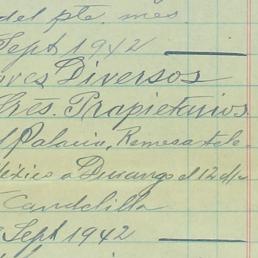 del pte. mes.
Sept 1942
Diversos
Sres. Propietarios
Palacio, Remesa tele-
México a Durango el 12 d/
Candelilla
Sept 1942